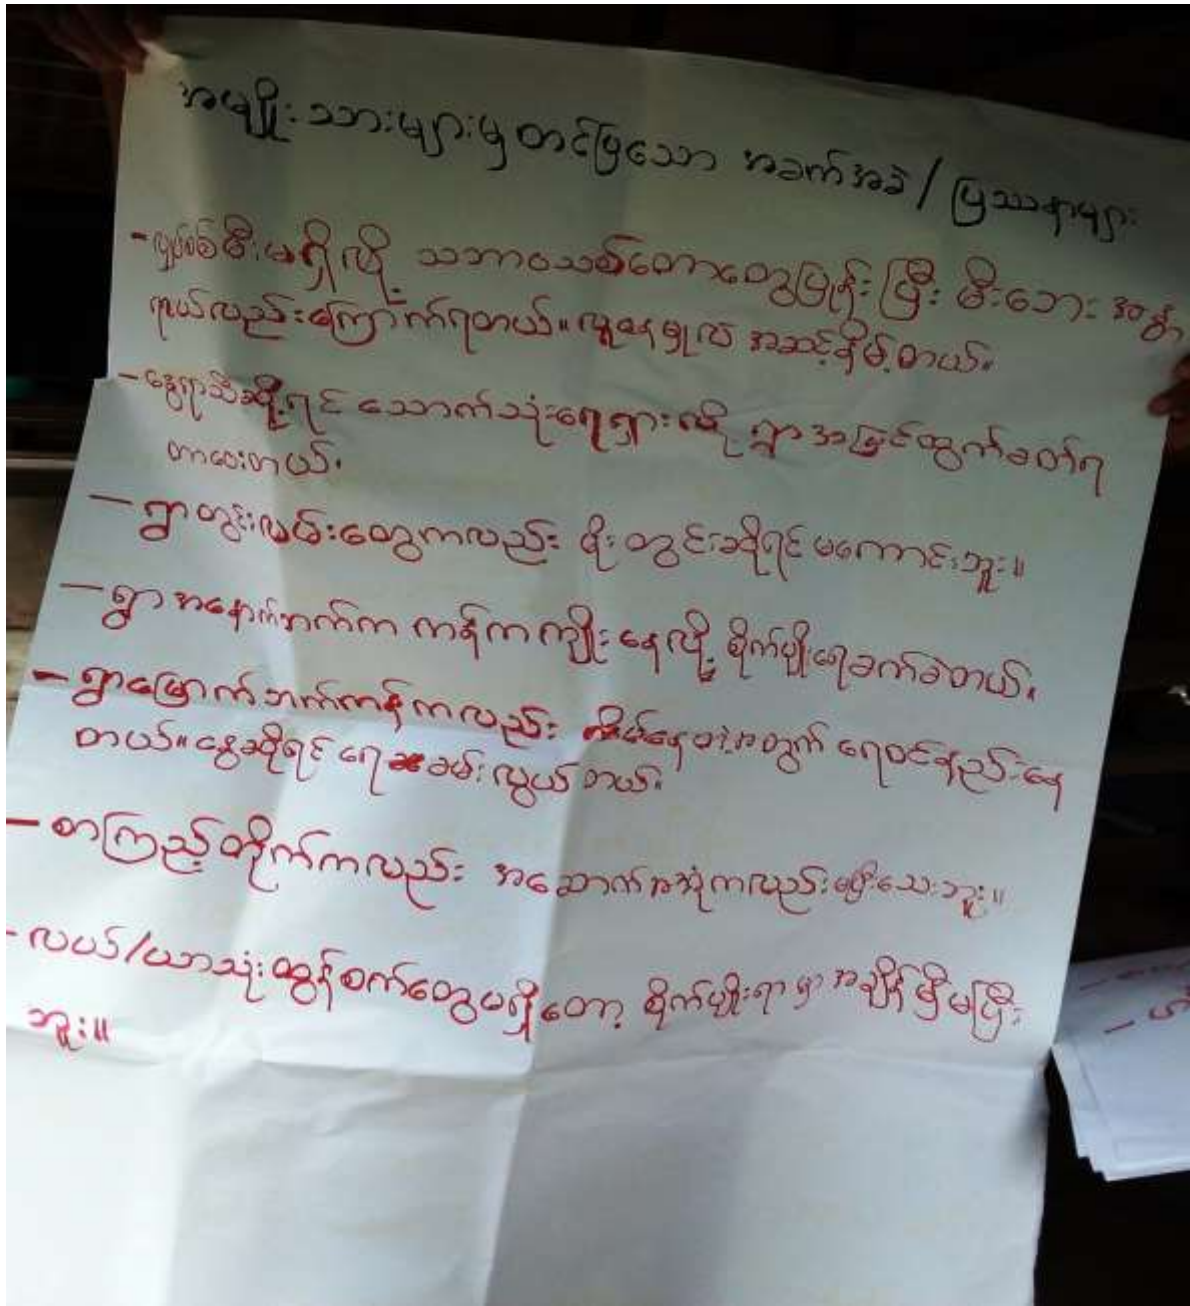 အမျိုးသားများမှတင်ပြသော အခက်အခဲ / ပြဿနာများ
- လျှပ်စစ်မီးမရှိလို့ သဘာဝသစ်တောတွေပြုန်းပြီး မီးဘေး အန္တ
ရာယ်လည်းကြောက်ရတယ်။ လူနေမှုလဲ အဆင့်နိမ့်တယ်။
- နွေရာသီဆိုရင် သောက်သုံးရေရှားလို့ ရွာအပြင်ထွက်ခတ်ရ
တာဝေးတယ်။
- ရွာတွင်းလမ်းတွေကလည်း မိုးတွင်းဆိုရင် မကောင်းဘူး။
- ရွာအနောက်ဘက်က ကန်ကကျိုးနေလို့ စိုက်ပျိုးရေခက်ခဲတယ်။
- ရွာမြောက်ဘက်ကန်ကလည်း တိမ်နေတဲ့အတွက် ရေဝင်နည်းနေ
တယ်။ နွေဆိုရင် ရေခမ်းလွယ်တယ်။
- စာကြည့်တိုက်ကလည်း အဆောက်အအုံကလည်းမပြီးသေးဘူး။
- လယ်/ယာသုံးထွန်စက်တွေမရှိတော့ စိုက်ပျိုးရာမှာ အချိန်မှီမပြီး
ဘူး။